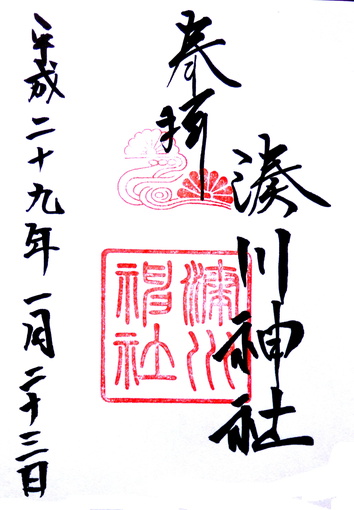 奉拝
湊川神社
湊川神社
平成二十九年一月二十三日